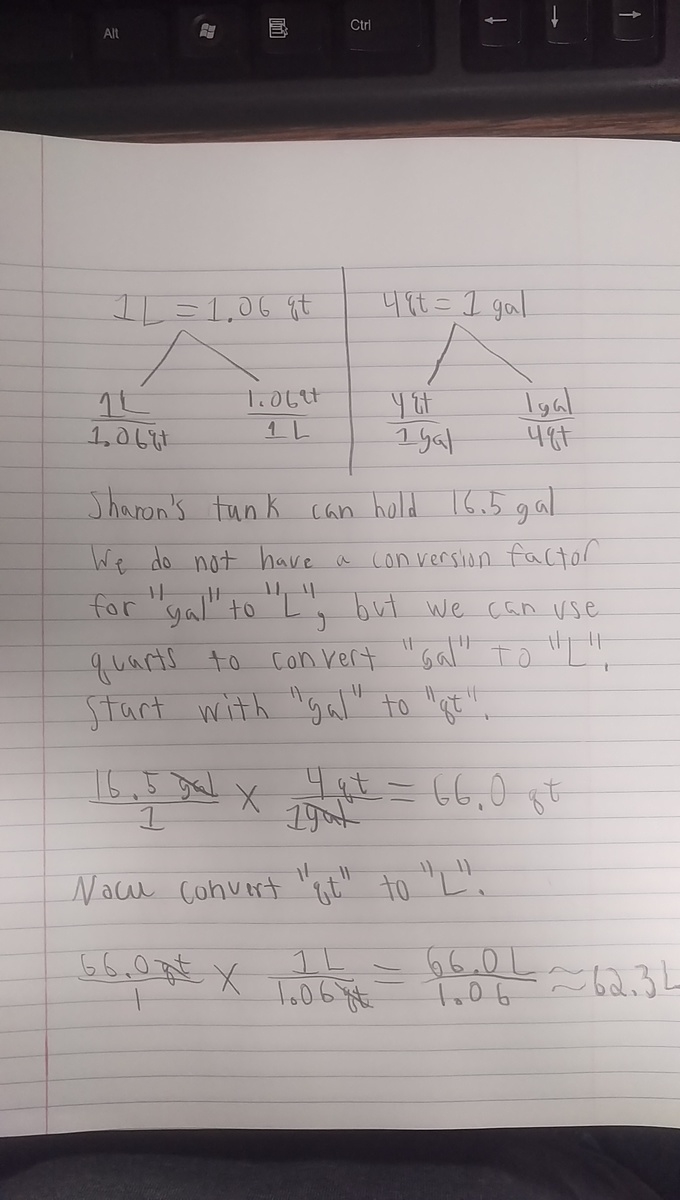 Alt Ctrl ← ↓ →
1L = 1.06 qt
4qt = 1 gal
1L/1.06qt 1.06qt/1L
4qt/1gal 1gal/4qt
Sharon's tank can hold 16.5 gal
We do not have a conversion factor
for "gal" to "L", but we can use
quarts to convert "gal" to "L".
Start with "gal" to "qt".
16.5 gal/1 × 4qt/1gal = 66.0 qt
Now convert "qt" to "L".
66.0qt/1 × 1L/1.06qt = 66.0L/1.06 ≈ 62.3L